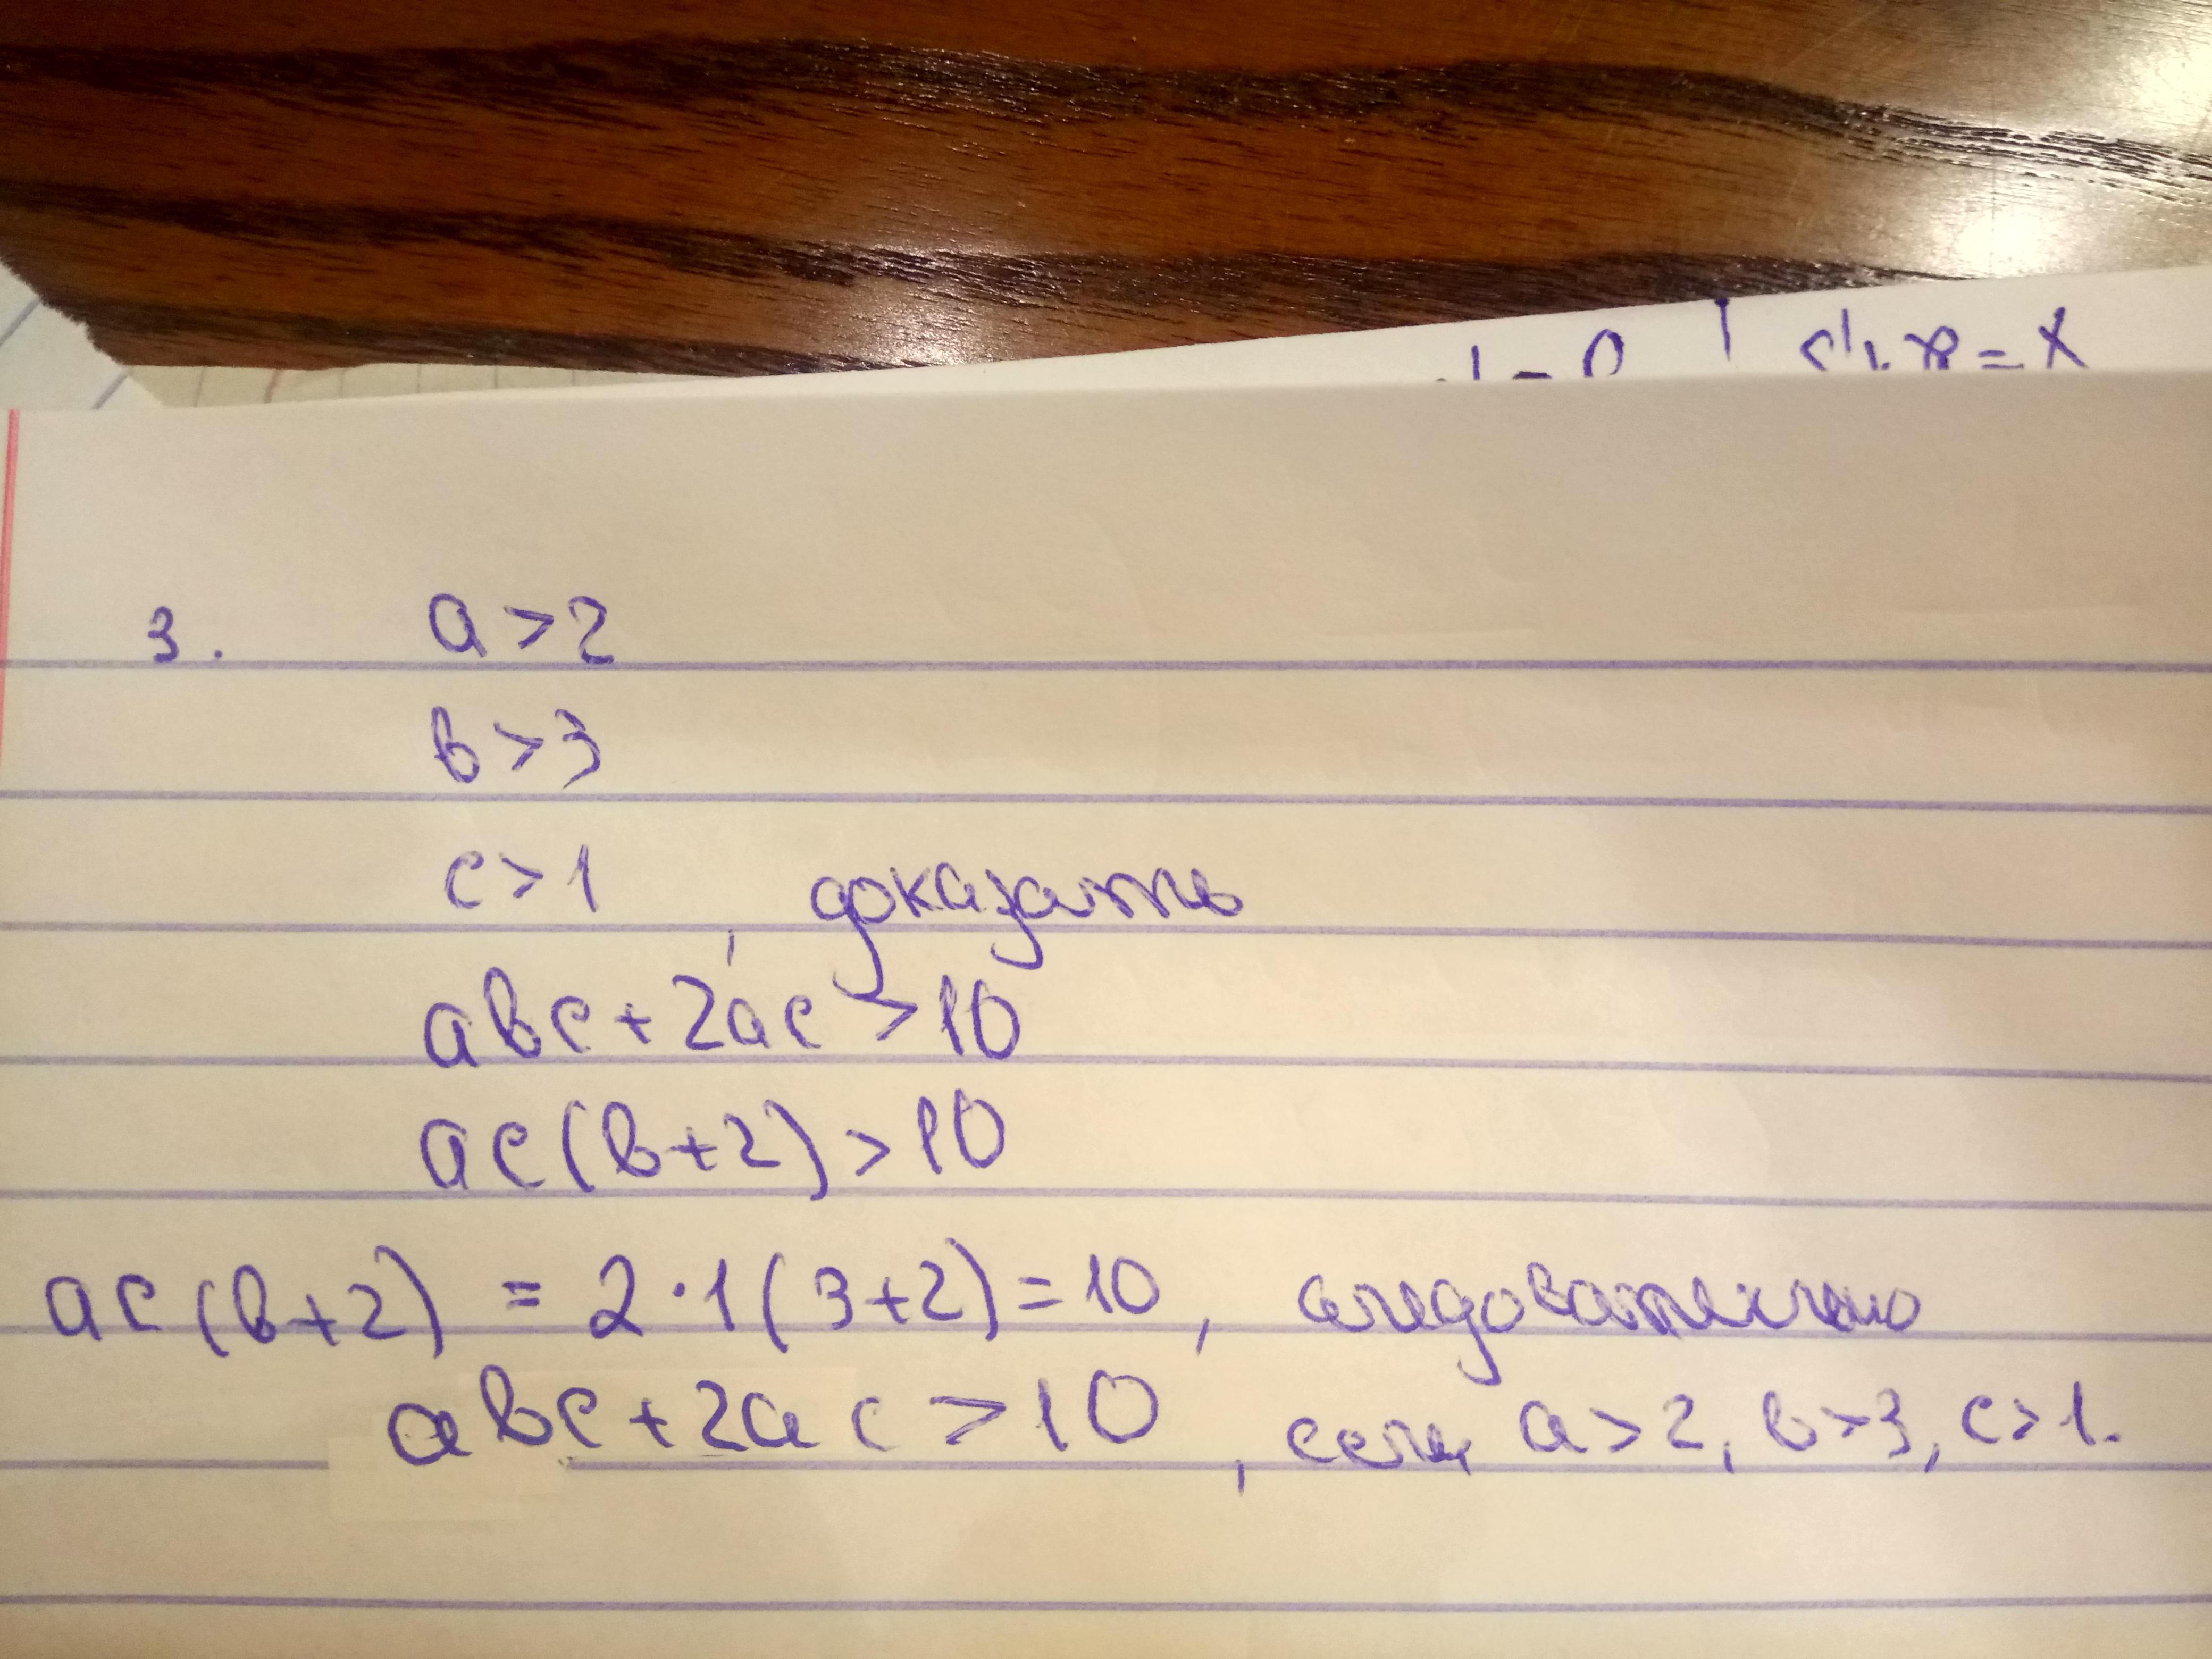 3. a > 2
в > 3
c > 1, доказать
aвc + 2ac > 10
ac(в+2) > 10
ac(в+2) = 2·1(3+2) = 10, следовательно
aвc + 2ac > 10, если a > 2, в > 3, c > 1.